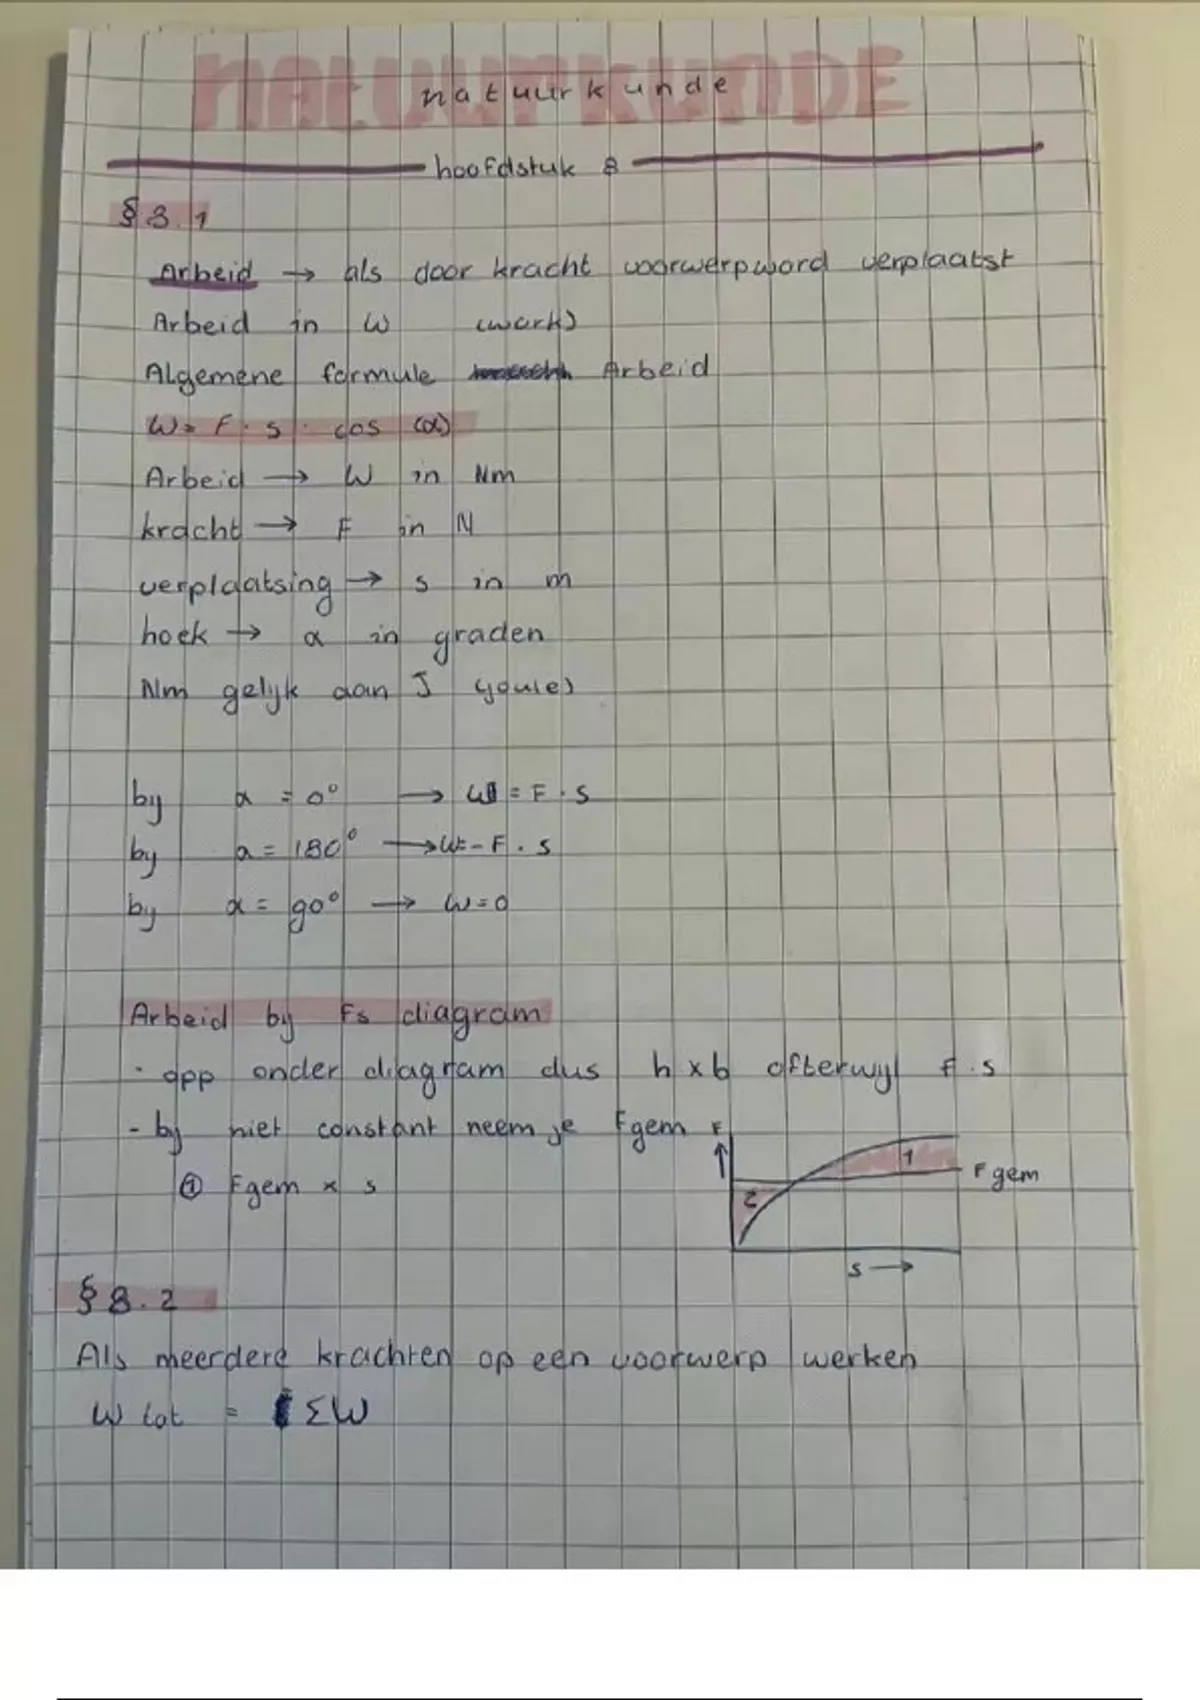 NATUURKUNDE
natuurkunde
hoofdstuk 8
§ 8.1
Arbeid → als door kracht voorwerp word verplaatst
Arbeid in W (work)
Algemene formule Arbeid
W = F · s · cos (α)
Arbeid → W in Nm
kracht → F in N
verplaatsing → s in m
hoek → α in graden
Nm gelijk aan J (joule)
bij α = 0° → W = F · s
bij α = 180° → W = - F · s
bij α = 90° → W = 0
Arbeid bij Fs diagram
· opp onder diagram dus h x b ofterwijl F · s
- bij niet constant neem je Fgem
① Fgem x s
F ↑
1
F gem
2
s →
§ 8.2
Als meerdere krachten op een voorwerp werken
W tot = ΣW